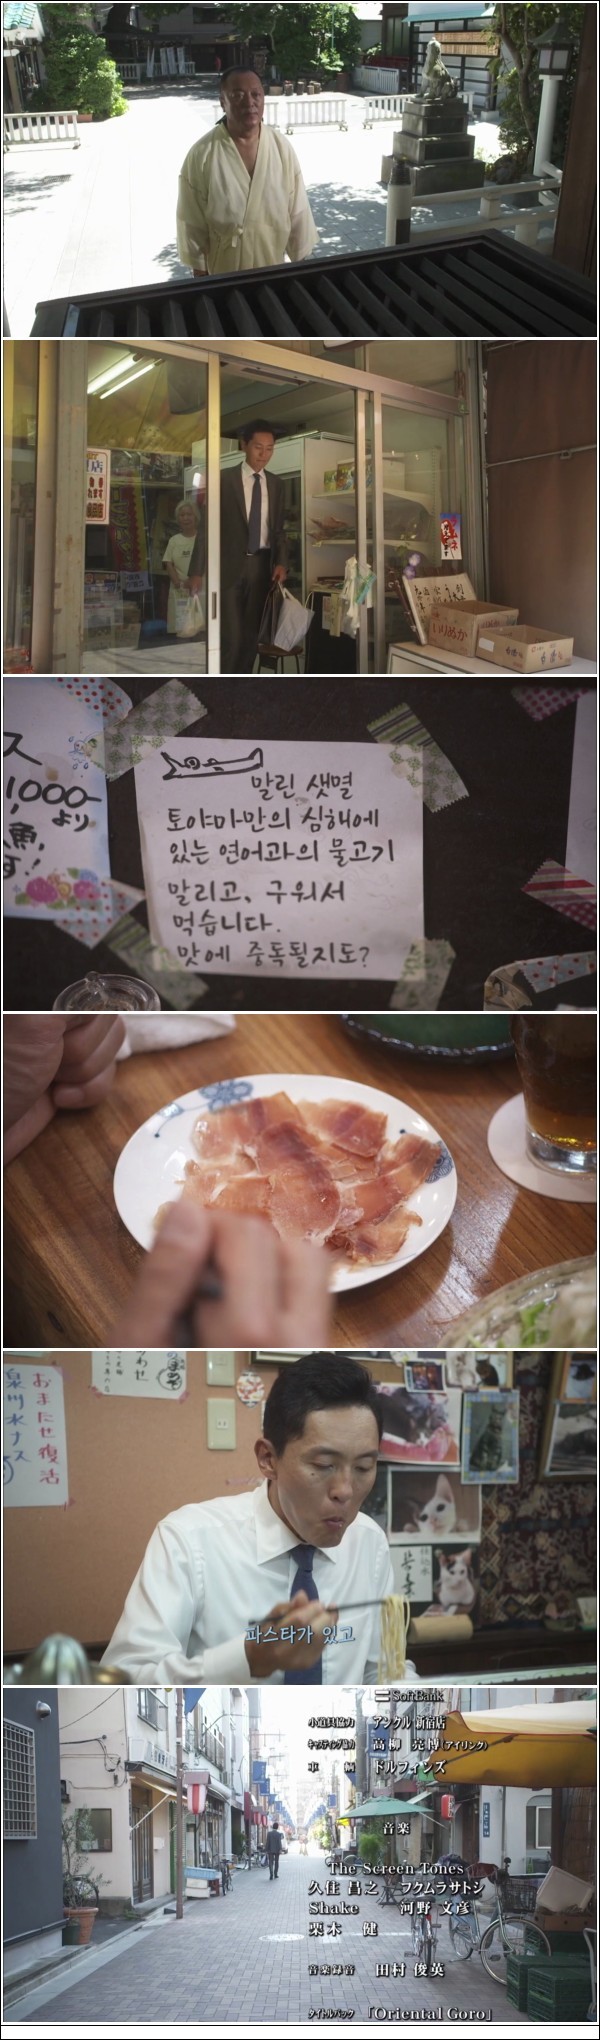 いりぬか
ス
1,000-
より
魚,
す!
말린 샛멸
토야마만의 심해에
있는 연어과의 물고기
말리고, 구워서
먹습니다.
맛에 중독될지도?
おまたせ復活
泉州水ナス
파스타가 있고
SoftBank
小道具協力 アンクル新宿店
キャスティング協力 高柳 亮博(アイリンク)
車 輌 ドルフィンズ
音楽
The Screen Tones
久住 昌之 フクムラサトシ
Shake 河野 文彦
栗木 健
音楽録音 田村 俊英
タイトルバック 「Oriental Goro」